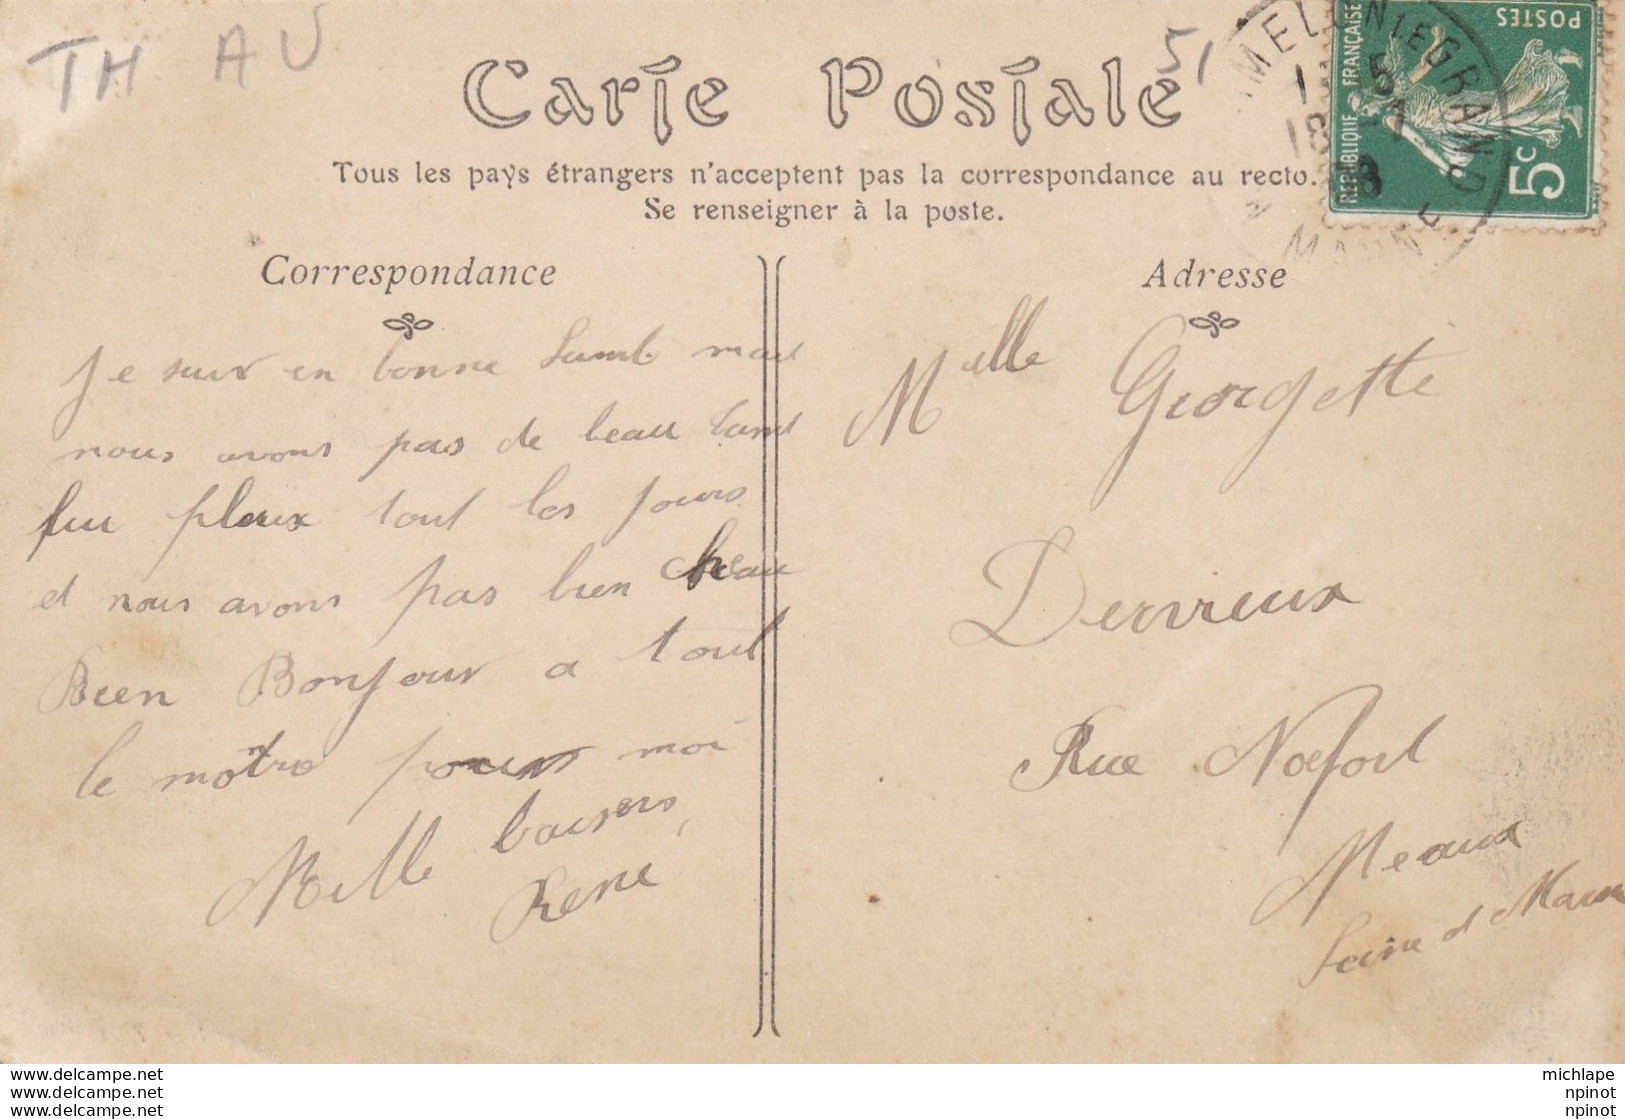 TH AU
51
Carte Postale
Tous les pays étrangers n'acceptent pas la correspondance au recto.
Se renseigner à la poste.
REPUBLIQUE FRANÇAISE
POSTES
5c
Correspondance
Je suis en bonne
nous avons pas de beau
pleux tout les jours
et nous avons pas bien beau
Bien Bonjour a tout
le moi
Mille baisers
Rene
Adresse
Melle Georgette
Devreux
Rue Noefort
Meaux
Seine et Marne
www.delcampe.net
www.delcampe.net
www.delcampe.net
michlape
npinot
npinot